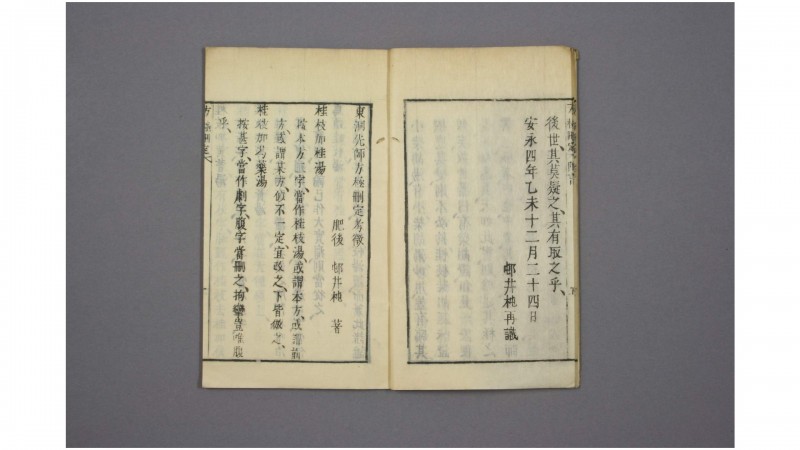 後世其莫疑之、其有取之乎、
安永四年乙未十二月二十四日
邨井杶再識
東洞先師方極刪定考徵
肥後 邨井杶 著
桂枝加桂湯
按本方二字、當作桂枝湯、或謂本方、或謂前
方、或謂某方、攸不一定、宜改之、下皆倣之、
桂枝加芍藥湯
按甚字、當作劇字、腹字當刪之、拘攣豈唯腹
乎、